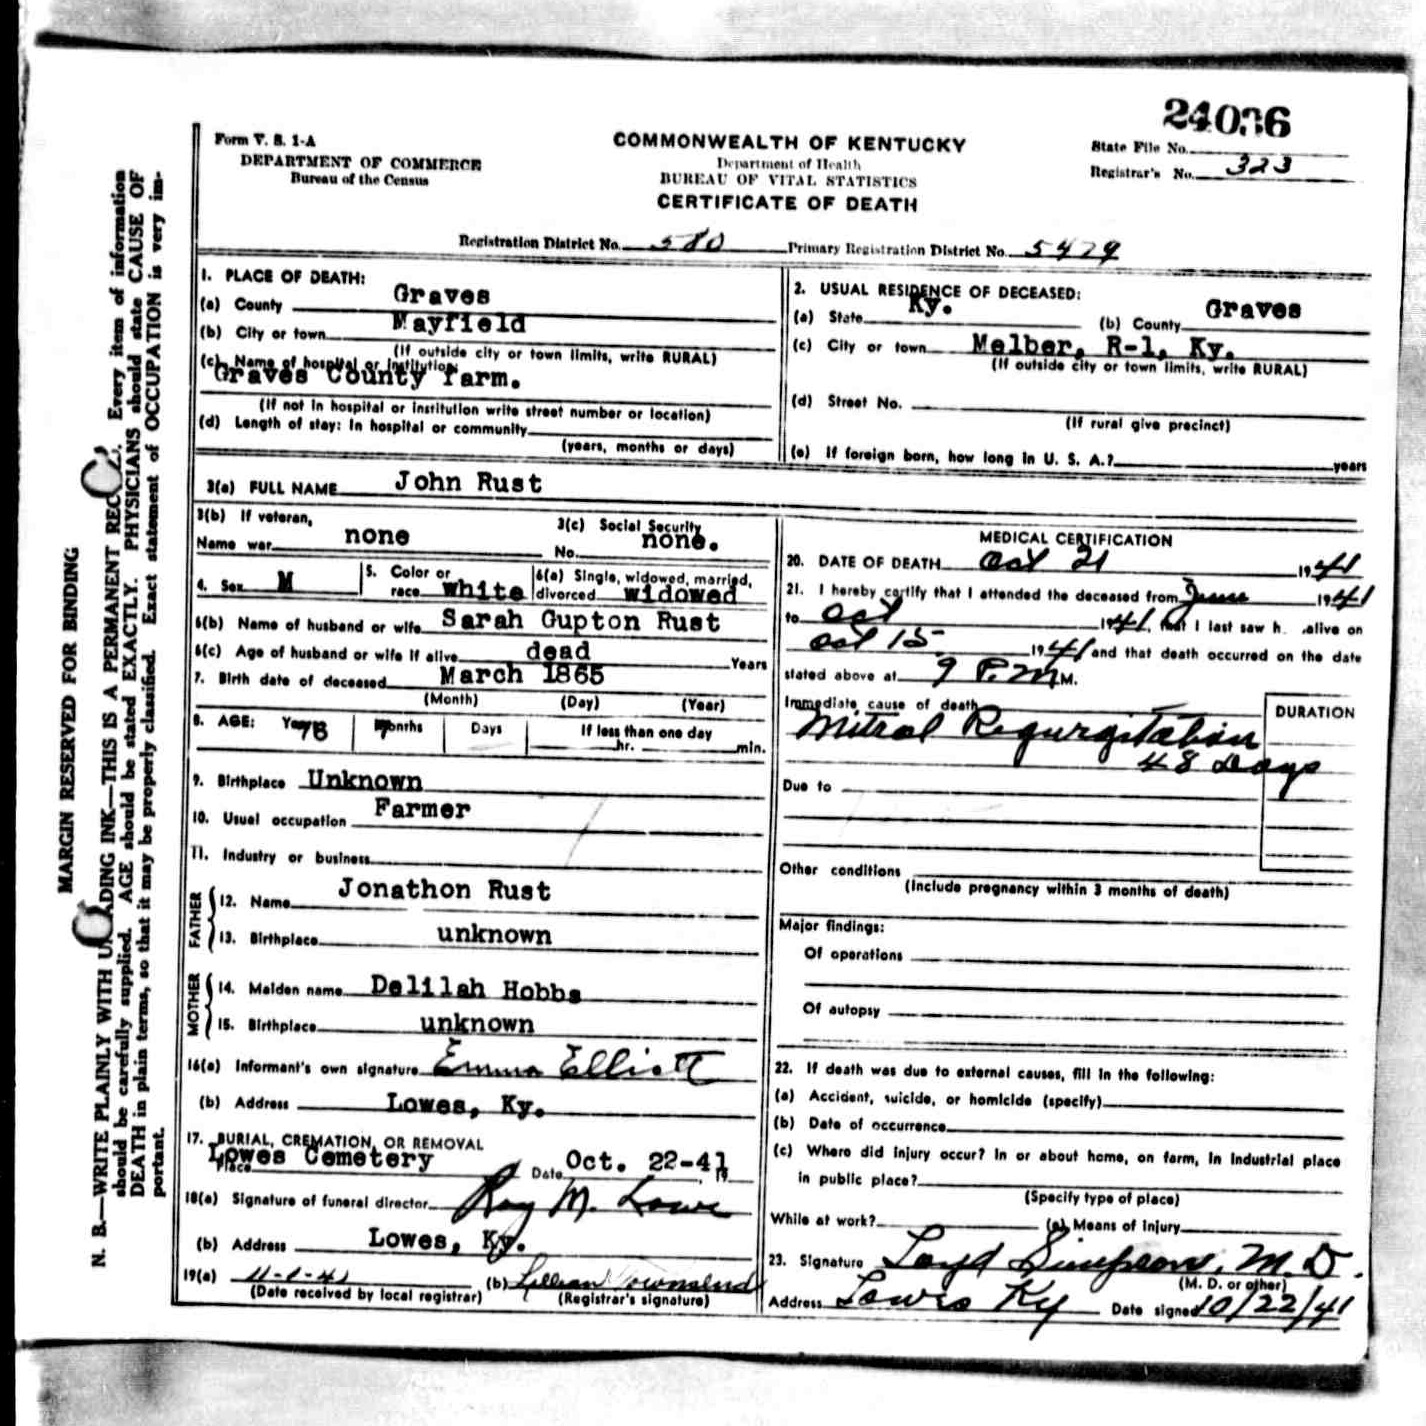 24036
Form V. S. 1-A
DEPARTMENT OF COMMERCE
Bureau of the Census
COMMONWEALTH OF KENTUCKY
Department of Health
BUREAU OF VITAL STATISTICS
CERTIFICATE OF DEATH
State File No.
Registrar's No. 323
Registration District No. 580 Primary Registration District No. 5479
MARGIN RESERVED FOR BINDING
N. B.—WRITE PLAINLY WITH UNFADING INK—THIS IS A PERMANENT RECORD. Every item of information
should be carefully supplied. AGE should be stated EXACTLY. PHYSICIANS should state CAUSE OF
DEATH in plain terms, so that it may be properly classified. Exact statement of OCCUPATION is very im-
portant.
1. PLACE OF DEATH:
(a) County Graves
(b) City or town Mayfield
(If outside city or town limits, write RURAL)
(c) Name of hospital or institution:
Graves County farm.
(If not in hospital or institution write street number or location)
(d) Length of stay: In hospital or community
(years, months or days)
2. USUAL RESIDENCE OF DECEASED:
(a) State Ky. (b) County Graves
(c) City or town Melber, R-1, Ky.
(If outside city or town limits, write RURAL)
(d) Street No.
(If rural give precinct)
(e) If foreign born, how long in U. S. A.? years
3(a) FULL NAME John Rust
3(b) If veteran,
Name war none
3(c) Social Security
No. none.
4. Sex M 5. Color or
race white 6(a) Single, widowed, married,
divorced widowed
6(b) Name of husband or wife Sarah Gupton Rust
6(c) Age of husband or wife if alive dead Years
7. Birth date of deceased March 1865
(Month) (Day) (Year)
8. AGE: Years 76 Months 7 Days If less than one day
hr. min.
9. Birthplace Unknown
10. Usual occupation Farmer
11. Industry or business
FATHER
12. Name Jonathon Rust
13. Birthplace unknown
MOTHER
14. Maiden name Delilah Hobbs
15. Birthplace unknown
16(a) Informant's own signature Emma Elliott
(b) Address Lowes, Ky.
17. BURIAL, CREMATION, OR REMOVAL
Place Lowes Cemetery Date Oct. 22-41 19
18(a) Signature of funeral director Roy M. Lowe
(b) Address Lowes, Ky.
19(a) 11-1-41 (b) Lillian Townsend
(Date received by local registrar) (Registrar's signature)
MEDICAL CERTIFICATION
20. DATE OF DEATH Oct 21 1941
21. I hereby certify that I attended the deceased from June 1941
to Oct 1941, that I last saw h. alive on
Oct 15 1941 and that death occurred on the date
stated above at 9 P.M M.
Immediate cause of death DURATION
Mitral Regurgitation
48 Days
Due to
Other conditions
(Include pregnancy within 3 months of death)
Major findings:
Of operations
Of autopsy
22. If death was due to external causes, fill in the following:
(a) Accident, suicide, or homicide (specify)
(b) Date of occurrence
(c) Where did injury occur? In or about home, on farm, in industrial place
in public place?
(Specify type of place)
While at work? (e) Means of Injury
23. Signature Loyd Simpson, M.D.
(M. D. or other)
Address Lowes Ky Date signed 10/22/41